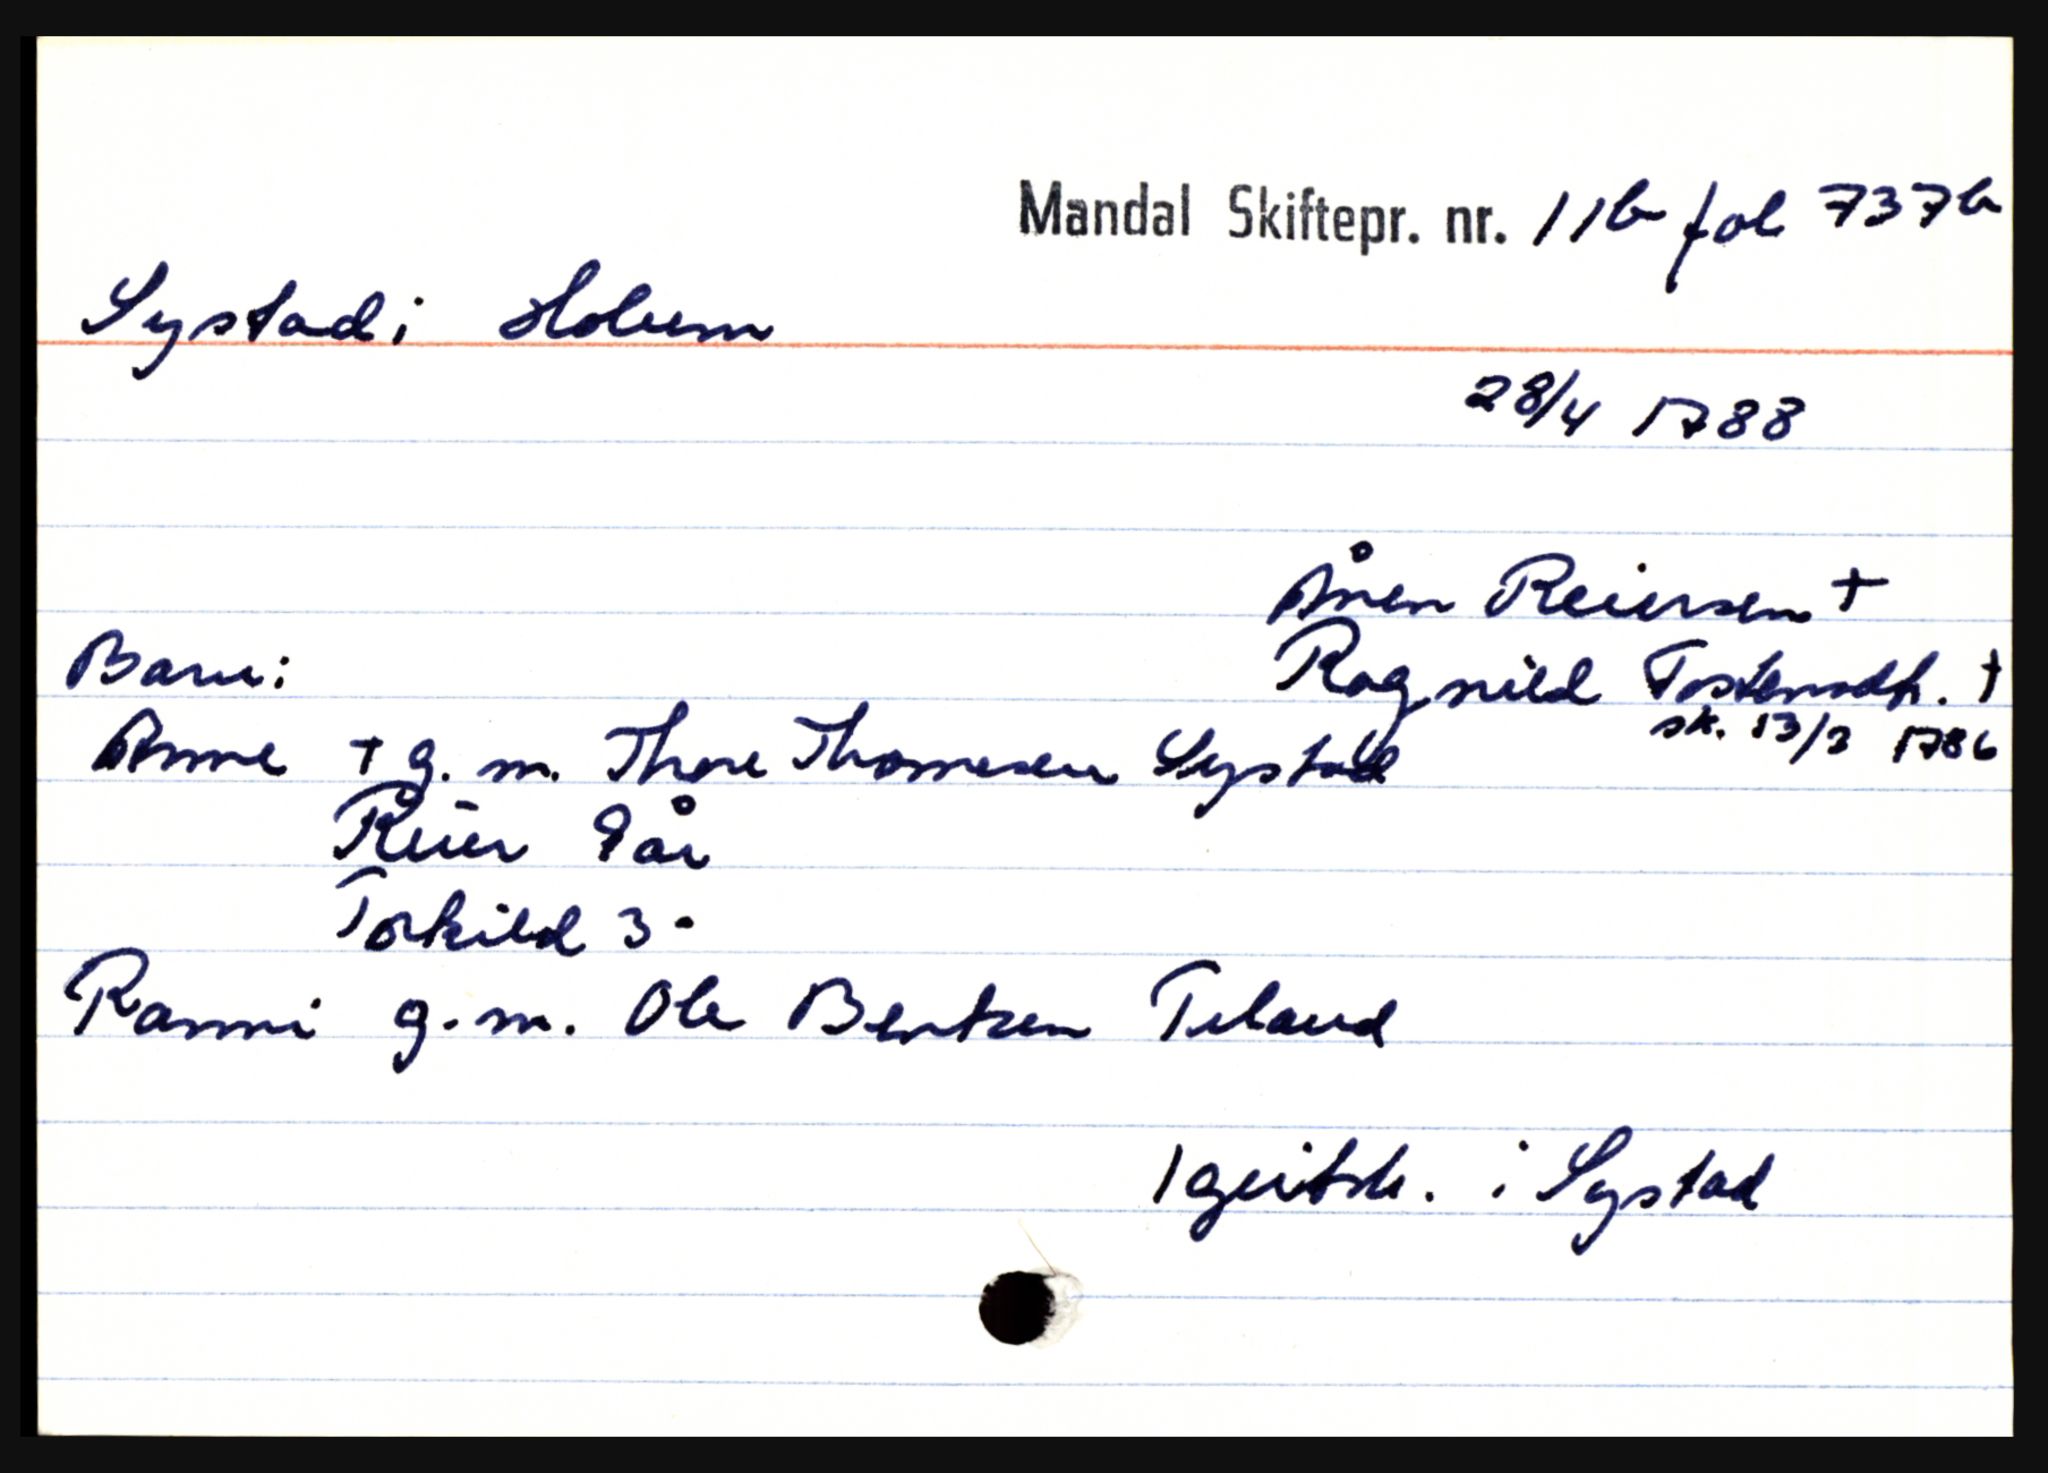 Mandal Skiftepr. nr. 11b fol 737b
Systad i Holum
28/4 1788
Ånen Reiersen †
Barn: Ragnild Tostensdtr. †
sk. 13/3 1786
Anne † g. m. Thore Thomesen Systad
Reier 9 år
Torkild 3 -
Ranni g. m. Ole Bentsen Tiland
1 geitsk. i Systad